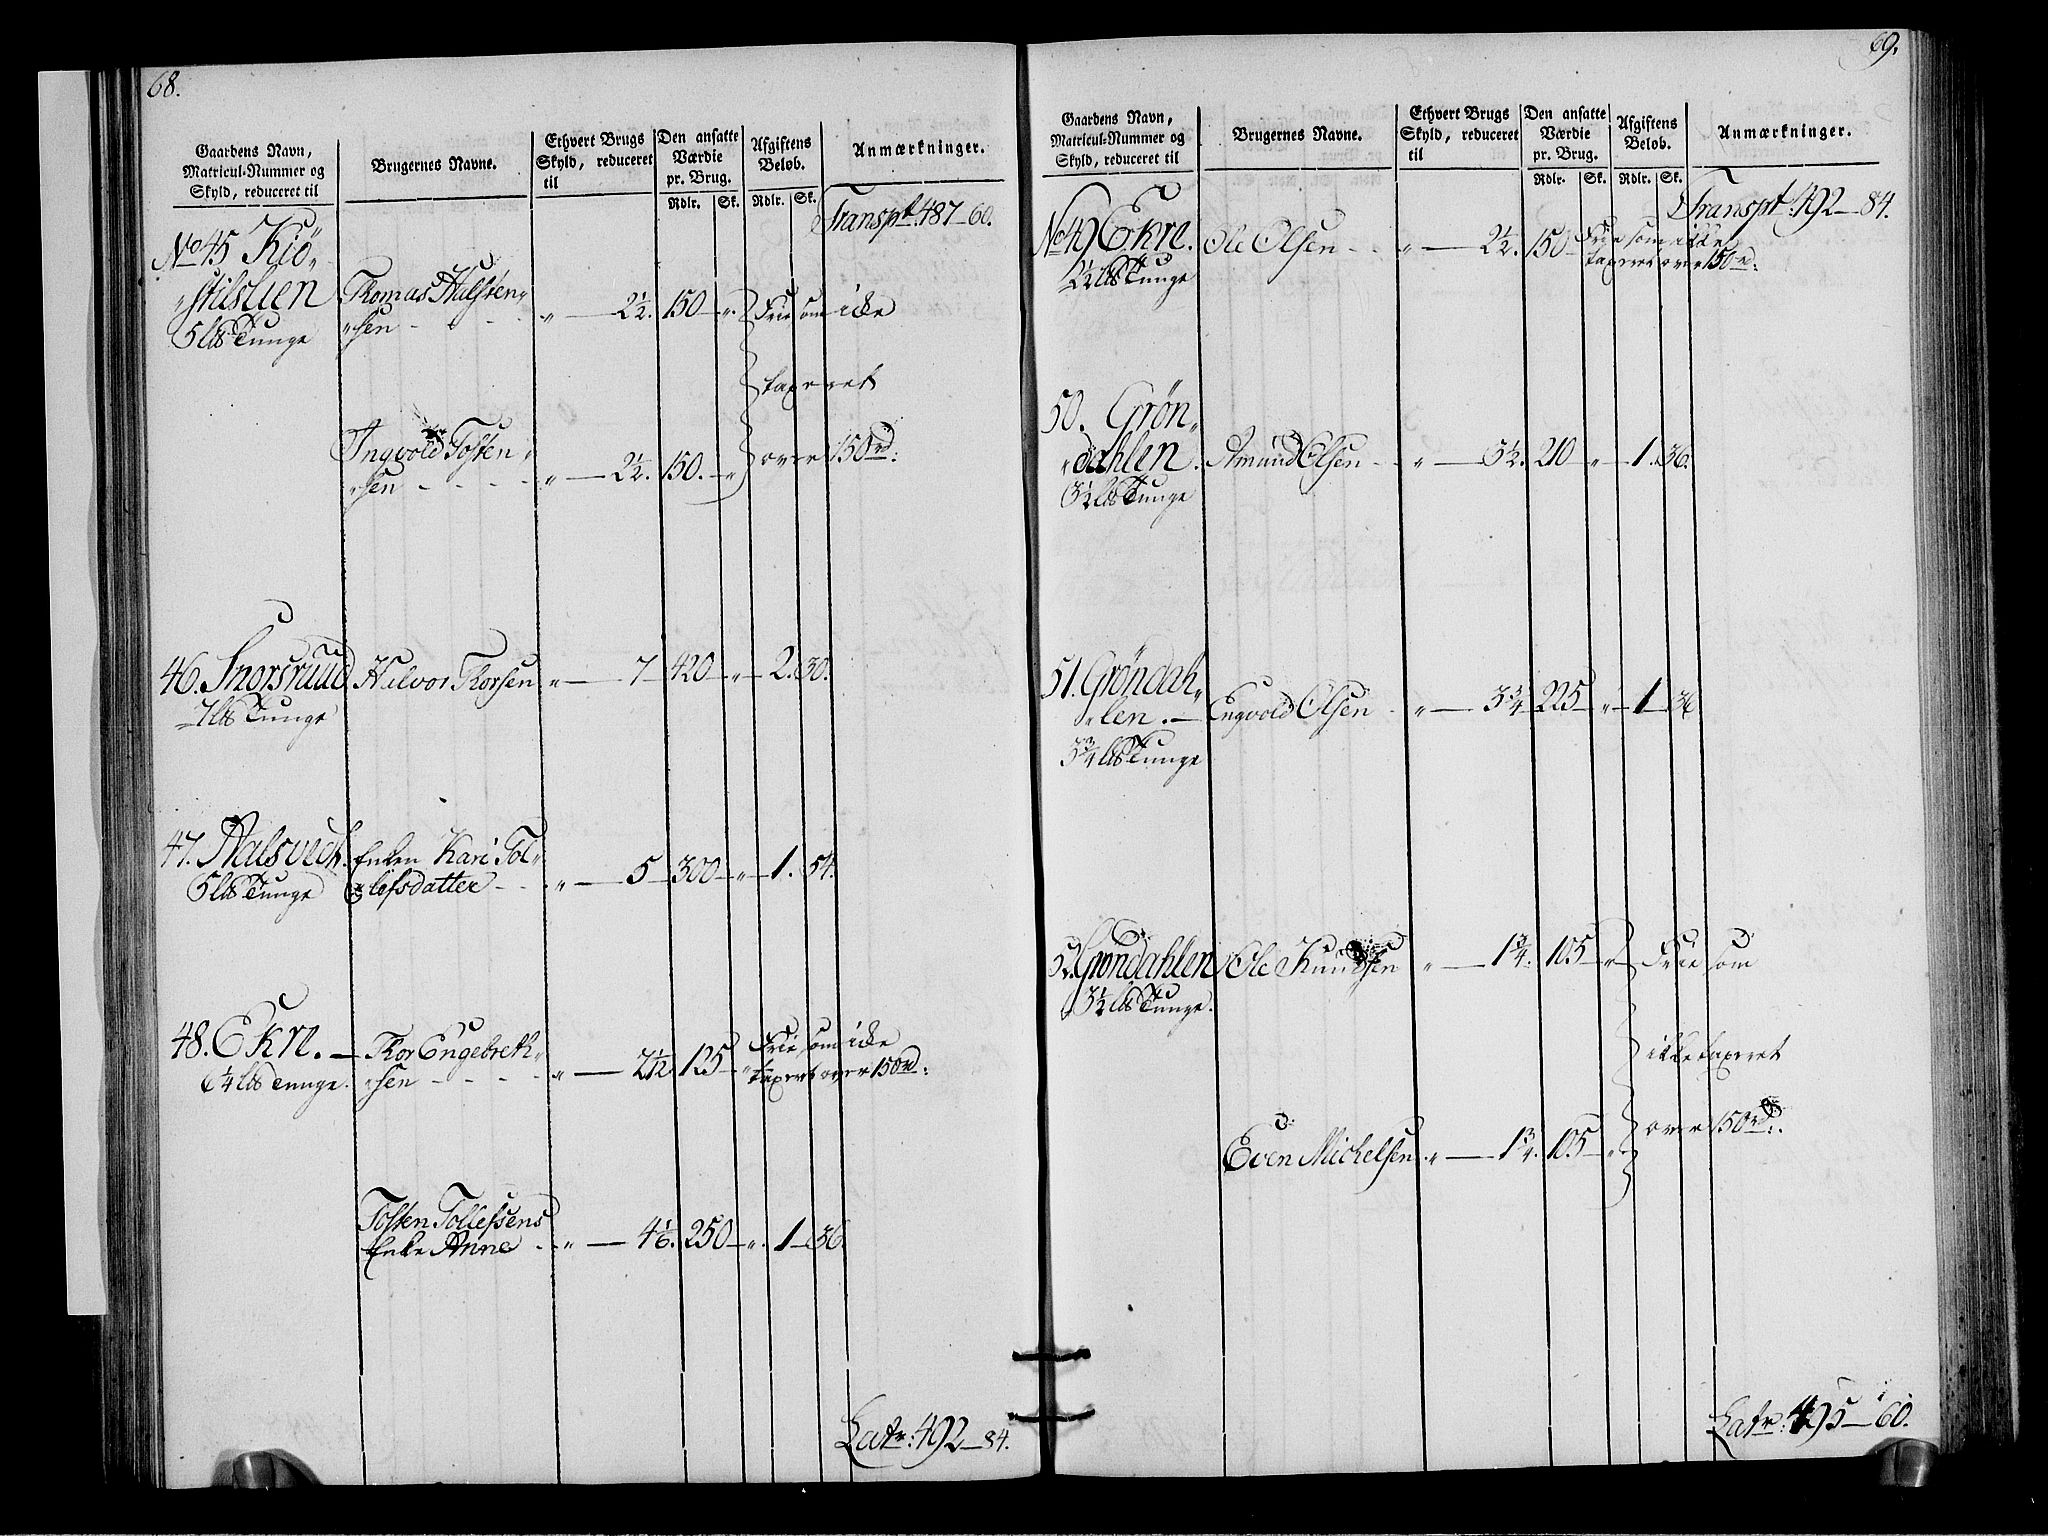 68.
Gaardens Navn, Matricul-Nummer og Skyld, reduceret til
Brugernes Navne.
Ethvert Brugs Skyld, reduceret til
Den ansatte Værdie pr. Brug.
Afgiftens Beløb.
Anmærkninger.
Rdlr. Sk. Rdlr. Sk.
Transpt 487–60.
No 45 Kiö-
"stilslien Thomas Halsten-
5 Lb Tunge "sen " — 2½. 150 – ". Frie som ikke
taxeret
Ingvold Tosten-
"sen " — 2½. 150. – " over 150 rd:
46. Snorsruud Halvor Thorsen " — 7 420 – " – 2. 30.
7 Lb Tunge
47. Aalsvedt. Enken Kari Tol-
5 Lb Tunge lefsdatter " — 5 – 300 – " – 1. 54.
48. Ekre. — Thor Engebreth- Frie som ikke
6¼ Lb Tunge. "sen " — 2½ 125 " taxeret over 150 rd:
Tosten Tollefsens
Enke Anne " — 4⅙. 250 – ". 1 – 36.
Latr: 492–84.
69.
Gaardens Navn, Matricul-Nummer og Skyld, reduceret til
Brugernes Navne.
Ethvert Brugs Skyld, reduceret til
Den ansatte Værdie pr. Brug.
Afgiftens Beløb.
Anmærkninger.
Rdlr. Sk. Rdlr. Sk.
Transpt: 492–84.
No 49 Ekre. Ole Olsen " — 2½. 150 Frie som ikke
2½ Lb Tunge taxeret over 150 rd:
50. Grøn-
"dahlen. Amund Olsen " — 3½. 210 " – 1. 36.
3½ Lb Tunge
51. Grøndah-
"len. — Engvold Olsen " — 3¾ 225 " – 1 – 36
3¾ Lb Tunge
52. Grøndahlen Ole Knudsen " — 1¾. 105 " Frie som
3½ Lb Tunge.
ikke taxeret
over 150 rd:
Even Michelsen " — 1¾. 105 "
Latr: 495–60.